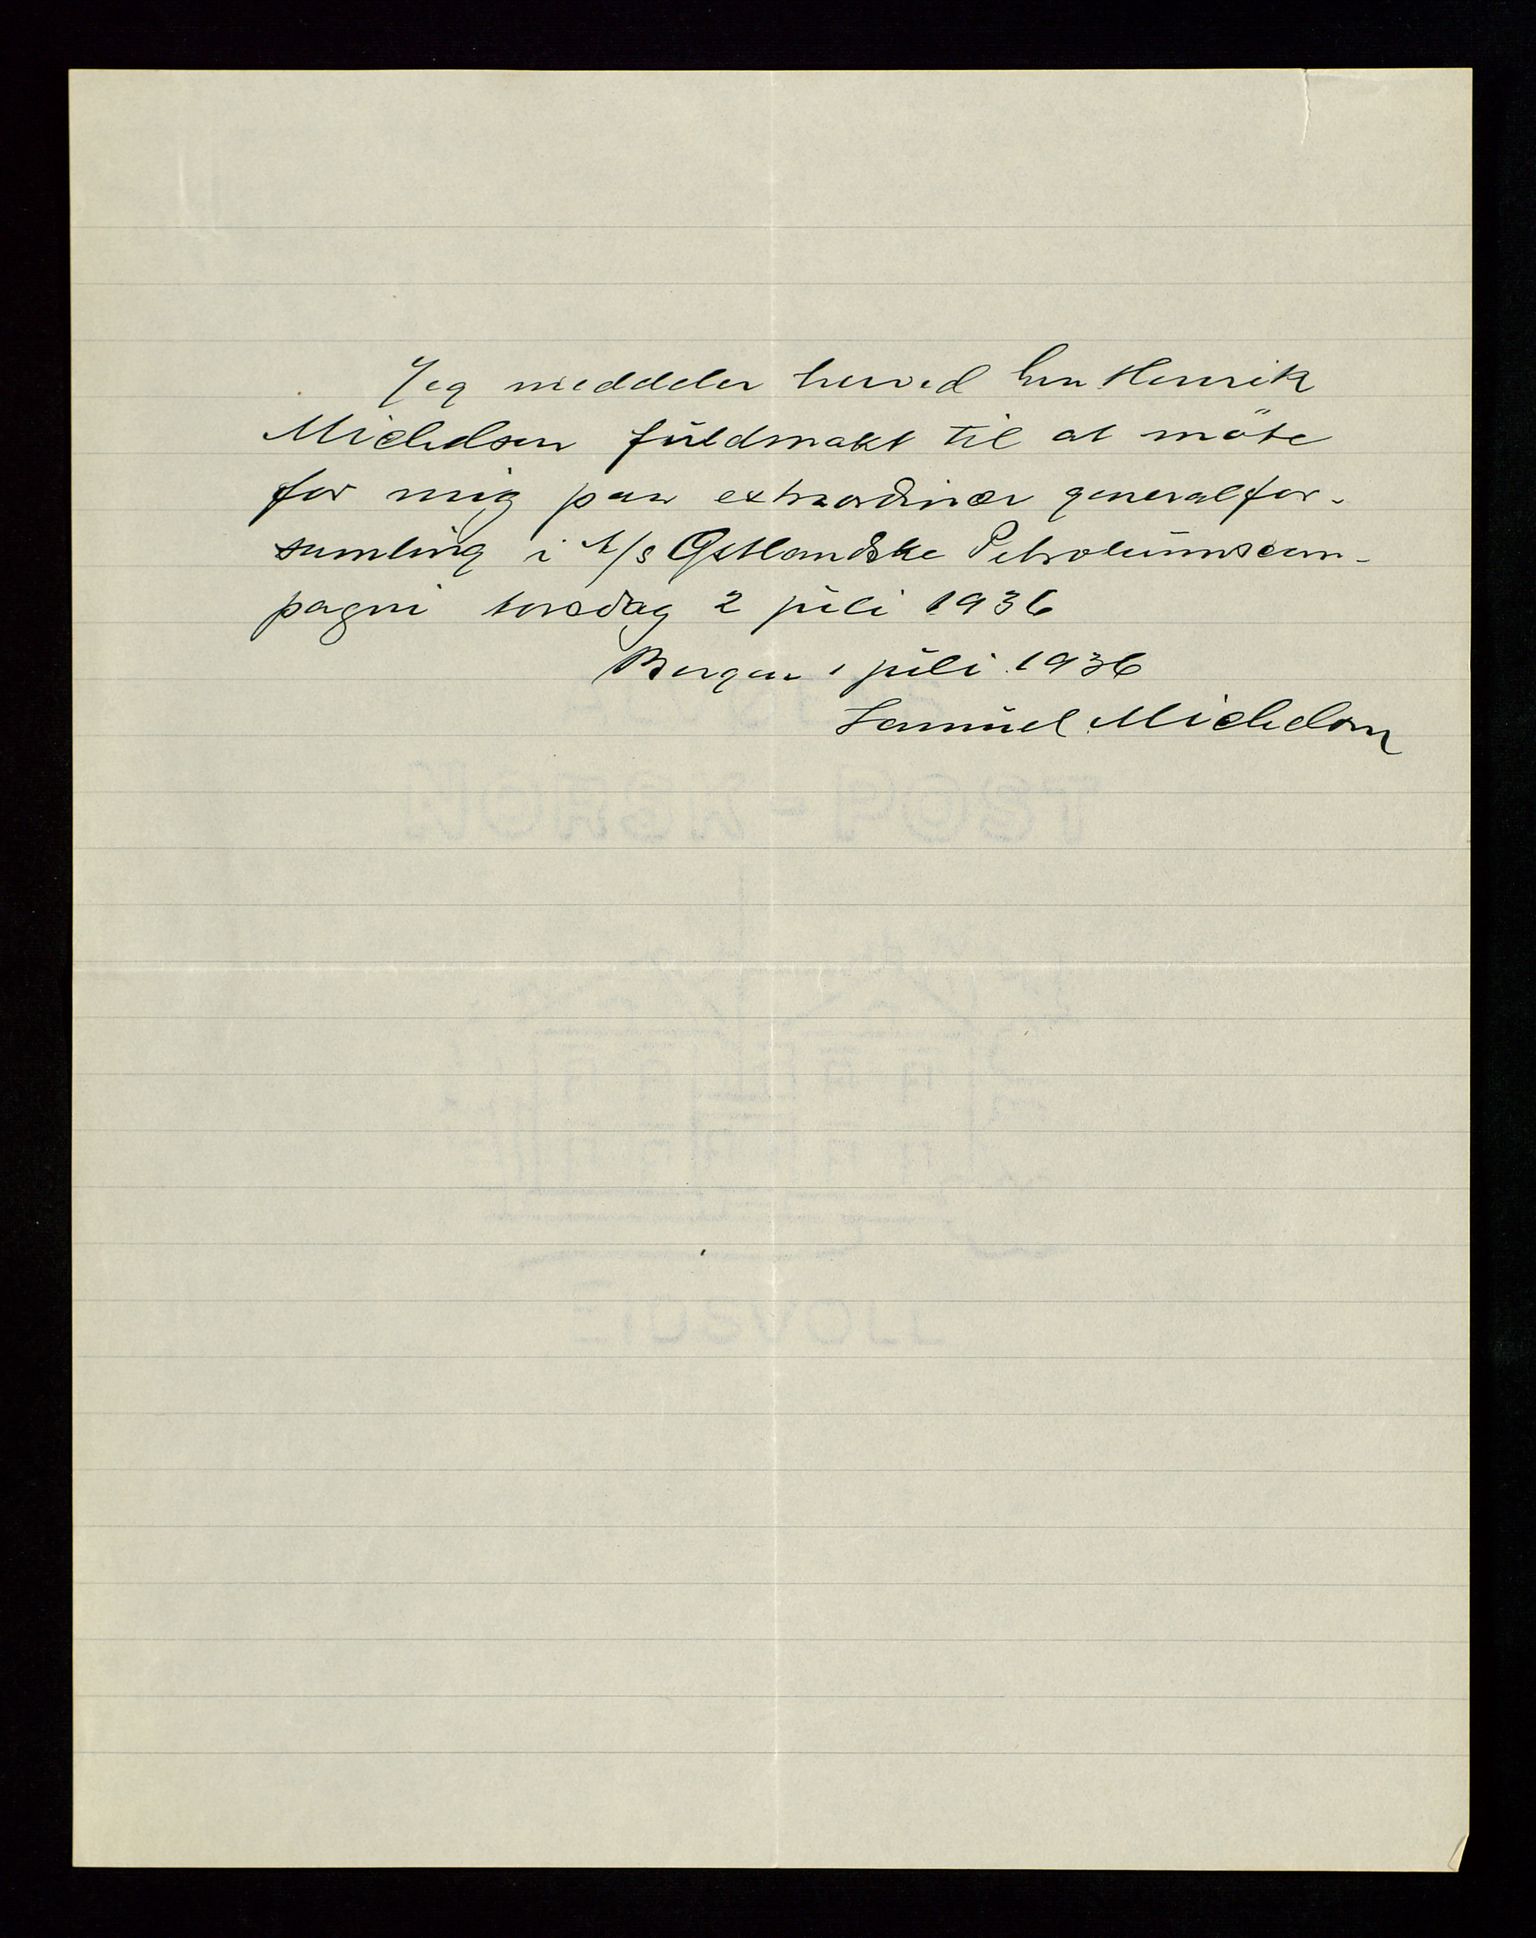 Jeg meddeler herved hr. Henrik
Michelsen fuldmakt til at møte
for mig paa extraordinær generalfor-
samling i A/s Østlandske Petroleumscom-
pagni torsdag 2 juli 1936
Bergen 1 juli 1936
Samuel Michelsen
NORSK - POST
EIDSVOLL